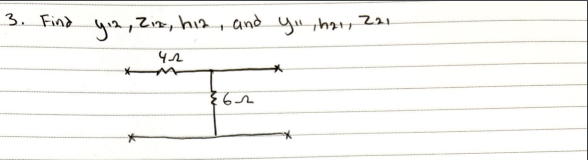 3. Find y12, Z12, h12, and y11, h21, Z21
4Ω
6Ω